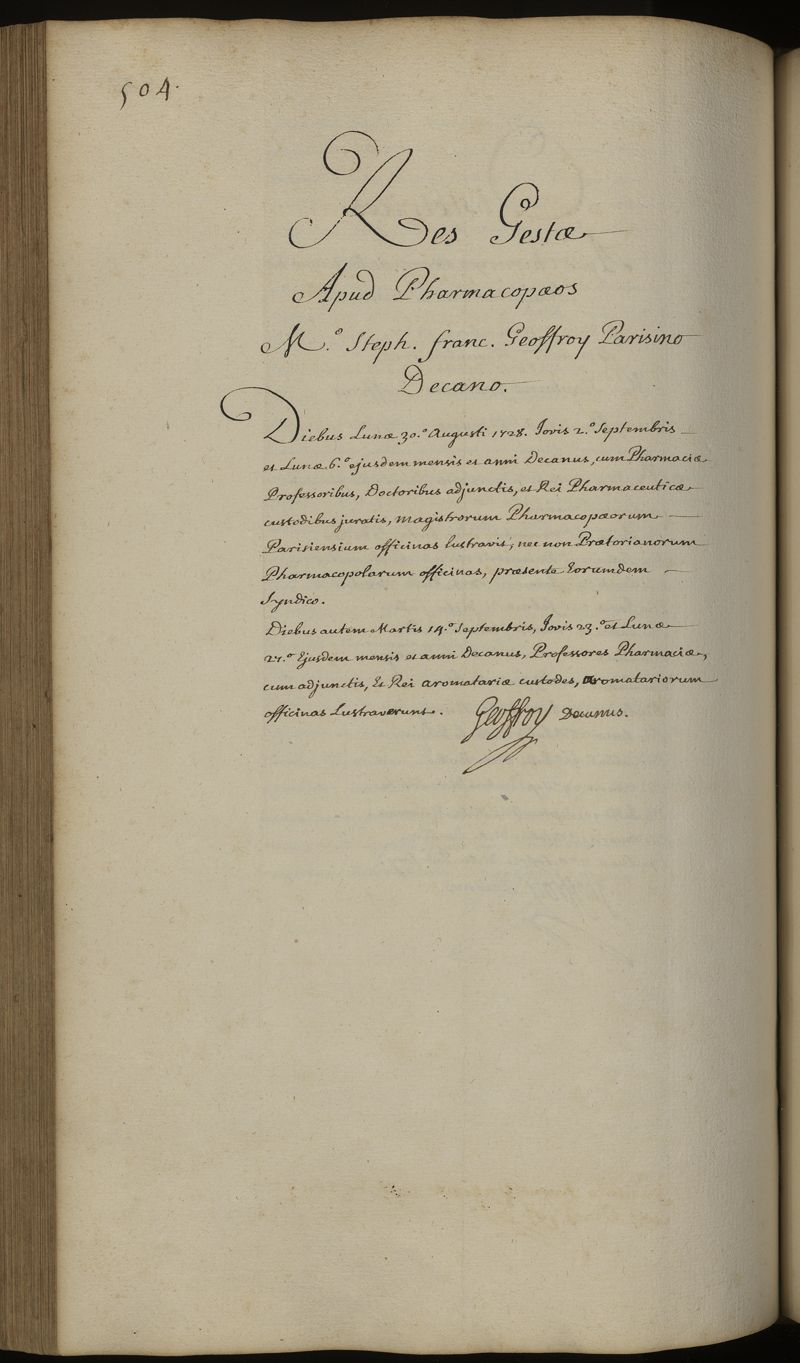 504.
Res Gestæ
Apud Pharmacopæos
M.° Steph. franc. Geoffroy Parisino
Decano.
Diebus Lunæ 30.° Augusti 1728. Jovis 2.° Septembris
et Lunæ 6.° ejusdem mensis et anni Decanus, cum Pharmaciæ
Professoribus, Doctoribus adjunctis, et Rei Pharmaceuticæ
custodibus juratis, magistrorum Pharmacopæorum
Parisiensium officinas lustravit, nec non Prætorianorum
Pharmacopolarum officinas, præsente Eorumdem
Syndico.
Diebus autem Martis 14.° Septembris, Jovis 23.° et Lunæ
27.° Ejusdem mensis et anni Decanus, Professores Pharmaciæ,
cum adjunctis, Et Rei aromatariæ custodes, Aromatariorum
officinas Lustraverunt. Geoffroy Decanus.